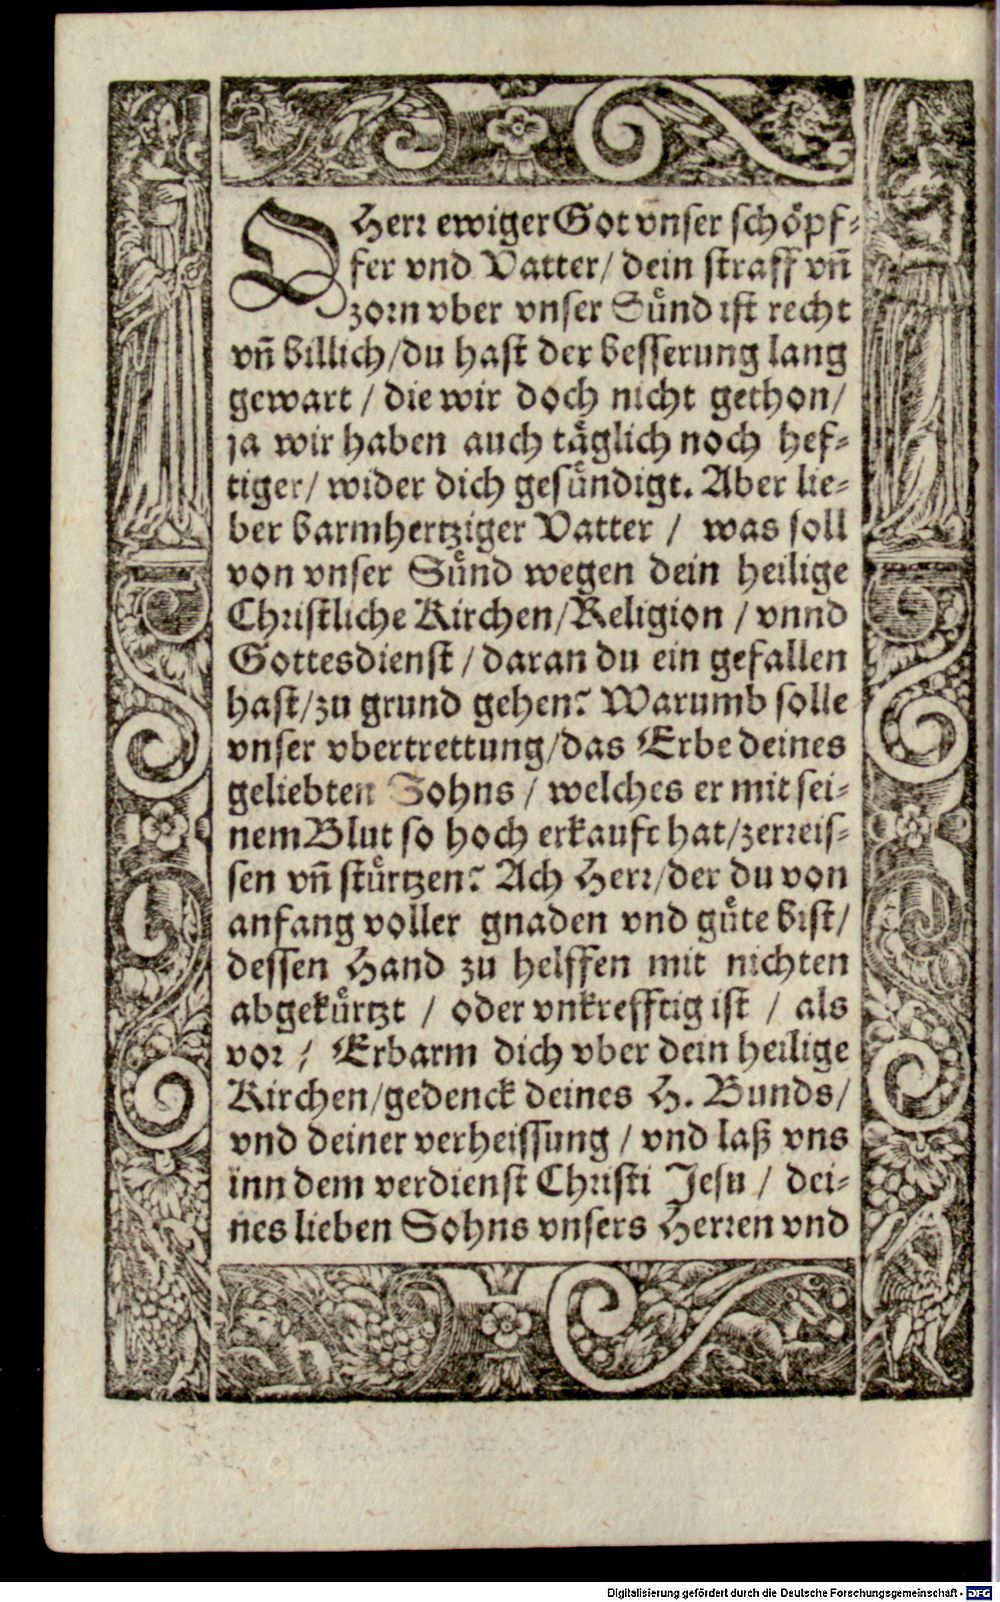 O Herr ewiger Got vnser schöpf-
fer vnd Vatter/ dein straff vñ
zorn vber vnser Sünd ist recht
vñ billich/du hast der besserung lang
gewart / die wir doch nicht gethon/
ja wir haben auch täglich noch hef-
tiger/ wider dich gesündigt. Aber lie-
ber barmhertziger Vatter / was soll
von vnser Sünd wegen dein heilige
Christliche Kirchen/Religion / vnnd
Gottesdienst / daran du ein gefallen
hast/zu grund gehen? Warumb solle
vnser vbertrettung/das Erbe deines
geliebten Sohns / welches er mit sei-
nem Blut so hoch erkauft hat/zerreis-
sen vñ stürtzen? Ach Herr/der du von
anfang voller gnaden vnd güte bist/
dessen Hand zu helffen mit nichten
abgekürtzt / oder vnkrefftig ist / als
vor / Erbarm dich vber dein heilige
Kirchen/gedenck deines H. Bunds/
vnd deiner verheissung / vnd laß vns
inn dem verdienst Christi Jesu / dei-
nes lieben Sohns vnsers Herren vnd
Digitalisierung gefördert durch die Deutsche Forschungsgemeinschaft - DFG